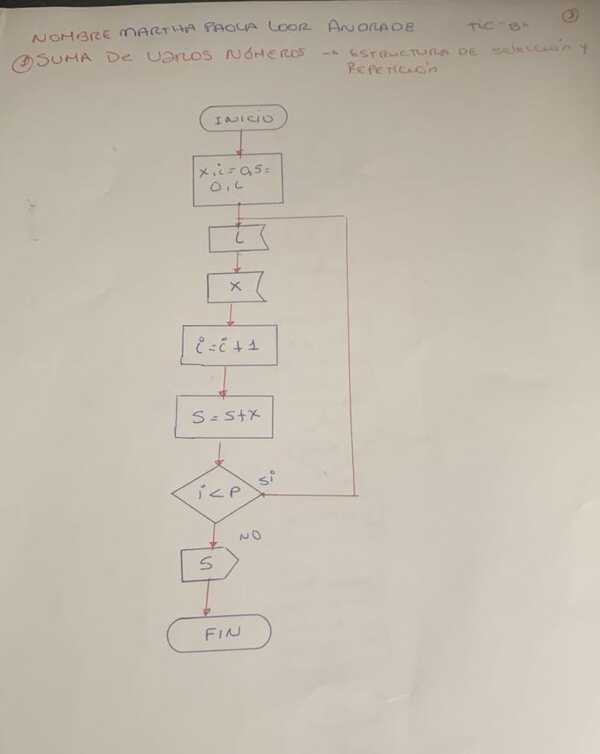 NOMBRE MARTHA PAOLA LOOR ANDRADE TIC-B- 3
① SUMA DE VARIOS NÚMEROS → ESTRUCTURA DE SELECCIÓN Y
REPETICIÓN
INICIO
x,i=0,S=
0,L
L
X
i=i+1
S=S+X
i<P
Si
NO
S
FIN